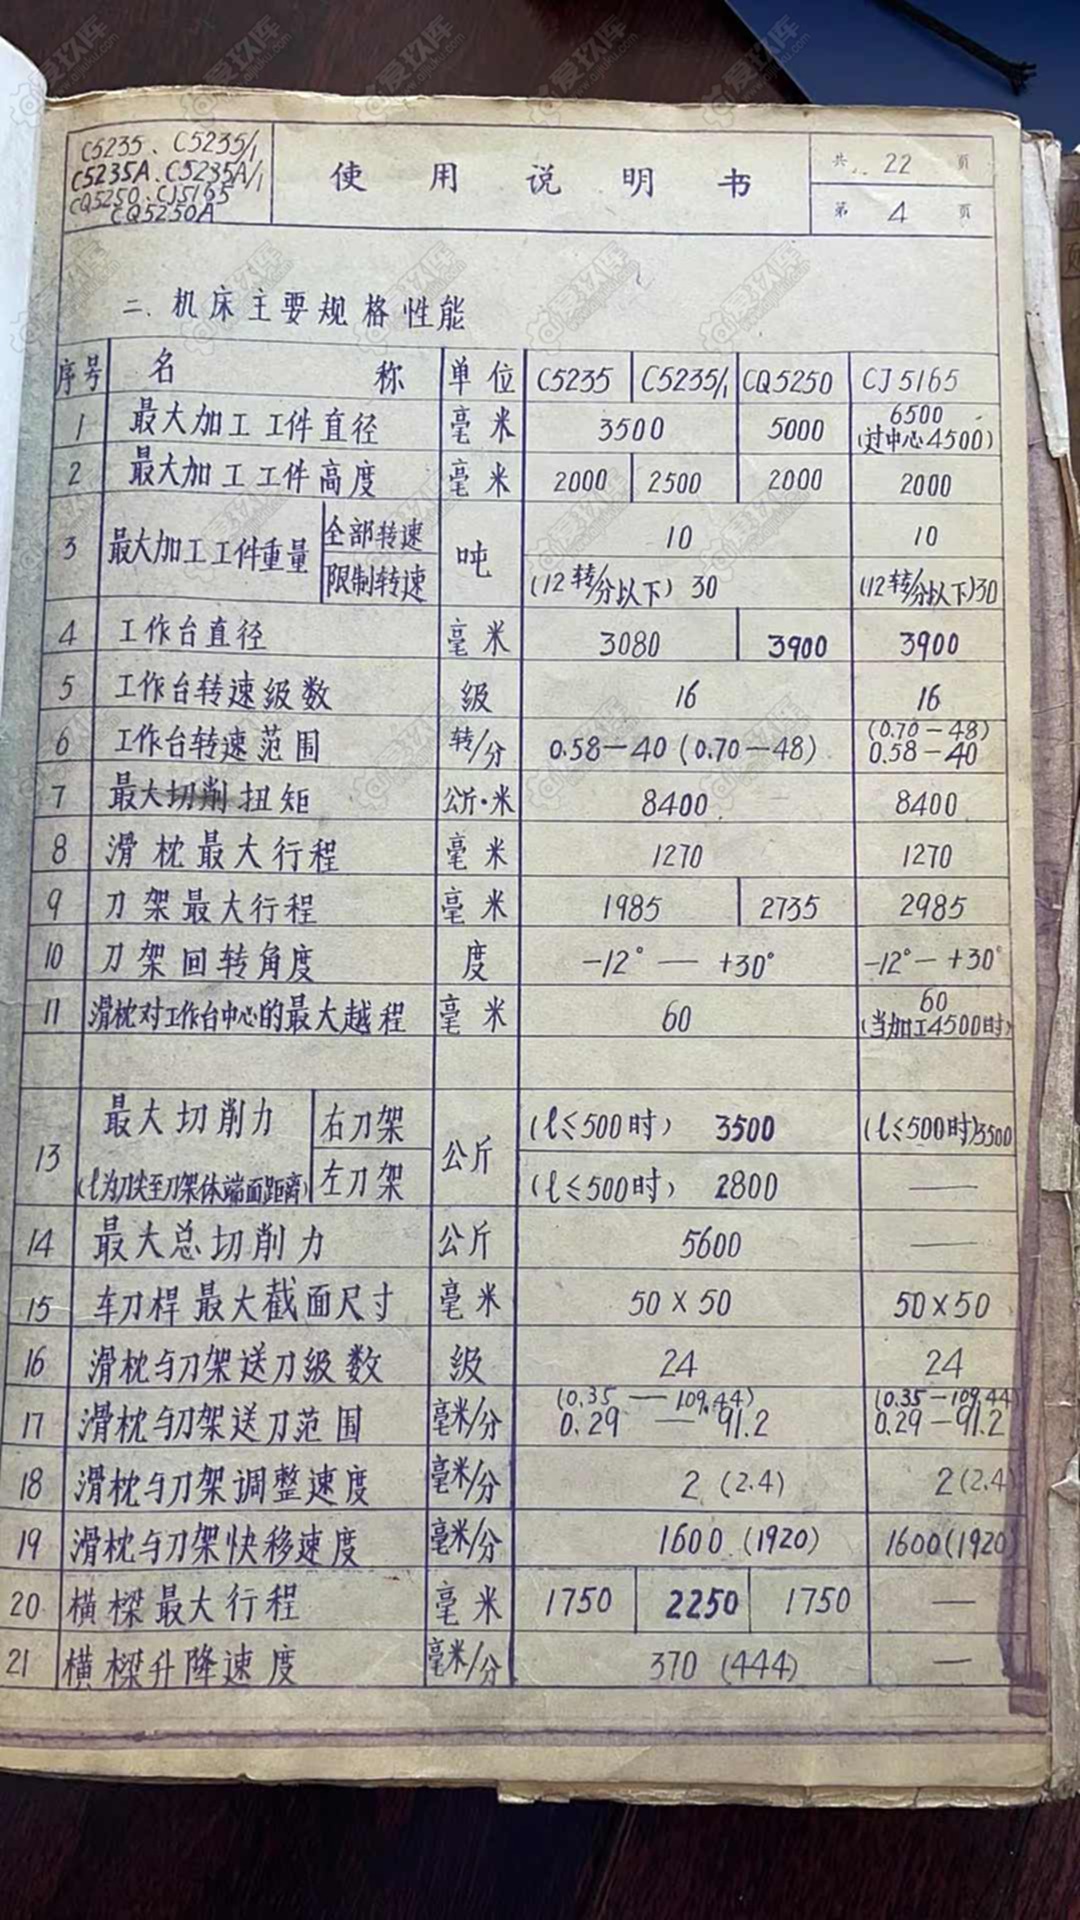 C5235、C5235/1
C5235A、C5235A/1
CQ5250、CJ5165
CQ5250A
使用说明书
共 22 页
第 4 页
二、机床主要规格性能
序号 名称 单位 C5235 C5235/1 CQ5250 CJ5165
1 最大加工工件直径 毫米 3500 5000 6500 (过中心4500)
2 最大加工工件高度 毫米 2000 2500 2000 2000
3 最大加工工件重量 全部转速 吨 10 10
限制转速 (12转/分以下) 30 (12转/分以下)30
4 工作台直径 毫米 3080 3900 3900
5 工作台转速级数 级 16 16
6 工作台转速范围 转/分 0.58—40 (0.70—48) (0.70—48) 0.58—40
7 最大切削扭矩 公斤·米 8400 8400
8 滑枕最大行程 毫米 1270 1270
9 刀架最大行程 毫米 1985 2735 2985
10 刀架回转角度 度 -12° — +30° -12°— +30°
11 滑枕对工作台中心的最大越程 毫米 60 60 (当加工4500时)
13 最大切削力 右刀架 公斤 (ℓ≤500时) 3500 (ℓ≤500时)3500
(ℓ为刀尖至刀架体端面距离) 左刀架 (ℓ≤500时) 2800 —
14 最大总切削力 公斤 5600 —
15 车刀桿最大截面尺寸 毫米 50×50 50×50
16 滑枕与刀架送刀级数 级 24 24
17 滑枕与刀架送刀范围 毫米/分 (0.35 — 109.44) 0.29 — 91.2 (0.35—109.44) 0.29—91.2
18 滑枕与刀架调整速度 毫米/分 2 (2.4) 2(2.4)
19 滑枕与刀架快移速度 毫米/分 1600 (1920) 1600(1920)
20 横樑最大行程 毫米 1750 2250 1750 —
21 横樑升降速度 毫米/分 370 (444) —